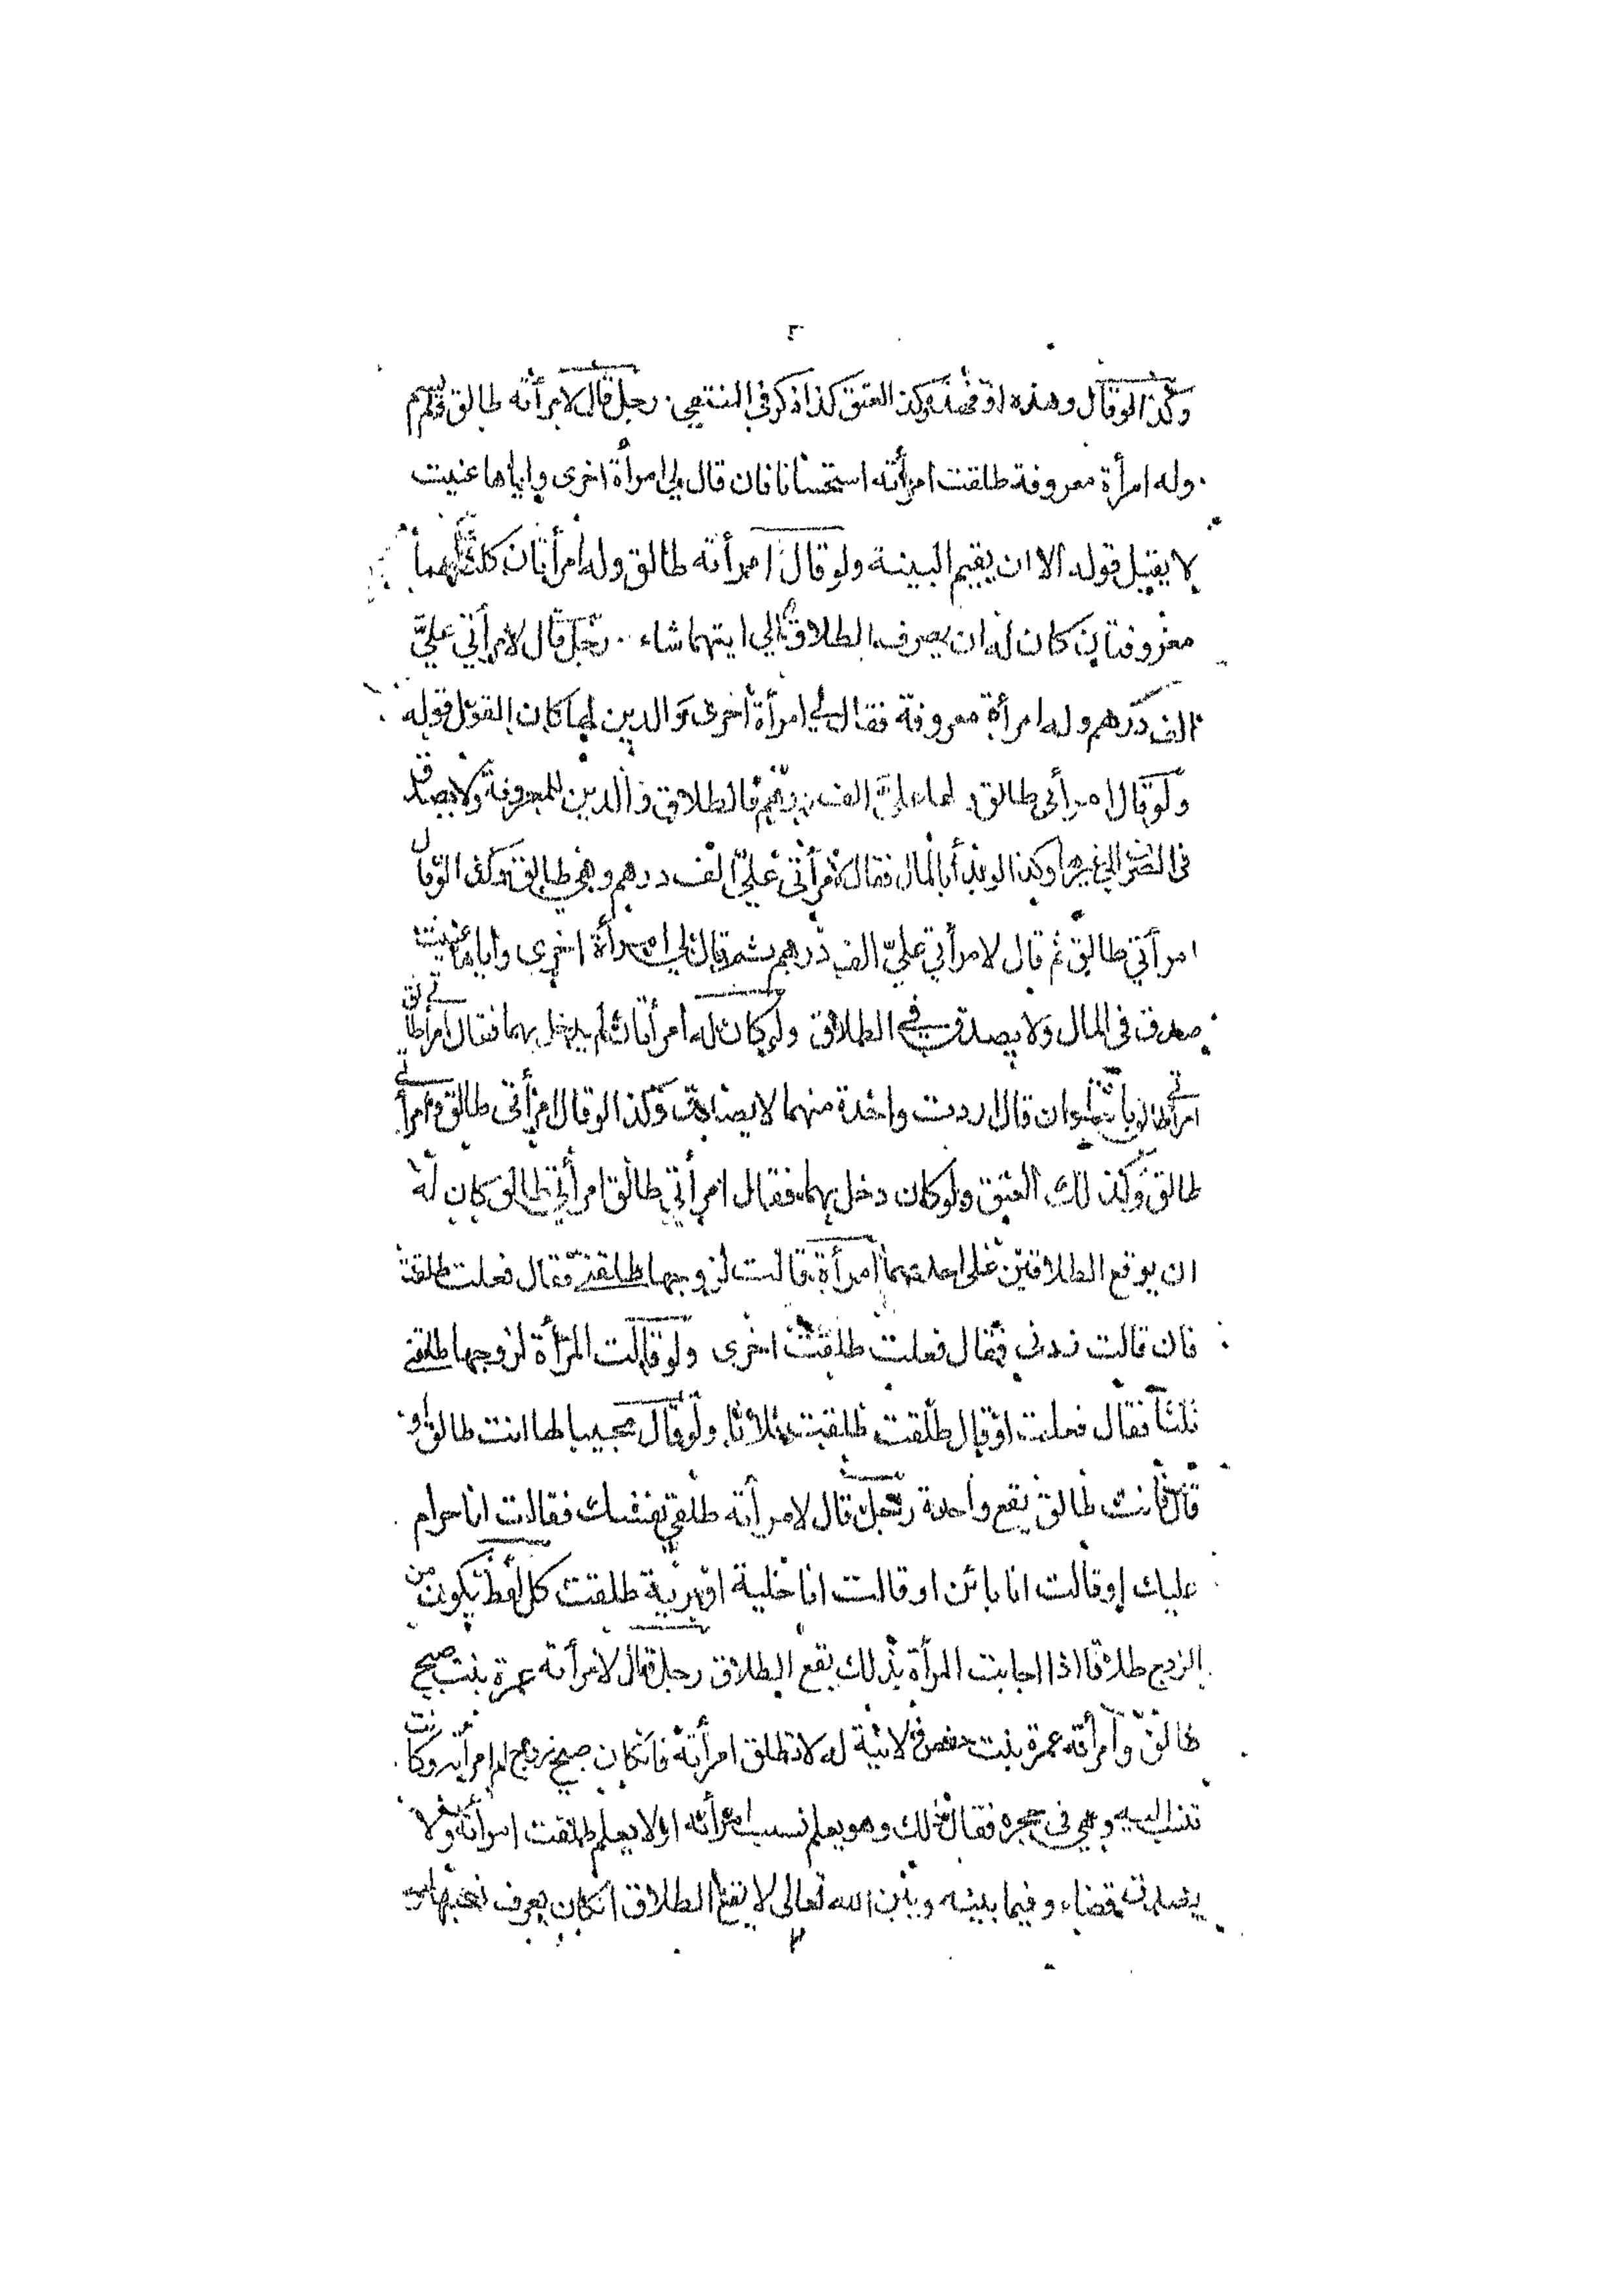 وكذا لو قال وهذه او فهذه وكذا العتق كذا ذكر في المنتقى رجل قال لامرأته طالق ولم يسم
وله امرأة معروفة طلقت امرأته استحسانا فان قال لي امرأة اخرى واياها عنيت
لا يقبل قوله الا ان يقيم البينة ولو قال امرأته طالق وله امرأتان كلتاهما
معروفتان كان له ان يصرف الطلاق الى ايتهما شاء رجل قال لامرأتي عليّ
الف درهم وله امرأة معروفة فقال لي امرأة اخرى والدين لها كان القول قوله
ولو قال امرأتى طالق ولها عليّ الف درهم فالطلاق والدين للمعروفة ولا يصدق
في الصرف الى غيرها وكذا لو بدأ بالمال فقال لامرأتى عليّ الف درهم وهي طالق وكذا لو قال
امرأتي طالق ثم قال لامرأتي عليّ الف درهم ثم قال لي امرأة اخرى واياها عنيت
صدق فى المال ولا يصدق في الطلاق ولو كان له امرأتان لم يدخل بهما فقال امرأتي طالق
امرأتي طالق بانتا وان قال اردت واحدة منهما لا يصدق وكذا لو قال امرأتى طالق وامرأتي
طالق وكذلك العتق ولو كان دخل بهما فقال امرأتي طالق امرأتي طالق كان له
ان يوقع الطلاقين على احدىهما امرأة قالت لزوجها طلقني فقال فعلت طلقت
فان قالت زدني فقال فعلت طلقت اخرى ولو قالت المرأة لزوجها طلقني
ثلثا فقال فعلت او قال طلقت طلقت ثلاثا ولو قال مجيبا لها انت طالق او
قال فانت طالق يقع واحدة رجل قال لامرأته طلقي نفسك فقالت انا حرام
عليك او قالت انا بائن او قالت انا خلية او برية طلقت كل لفظ يكون من
الزوج طلاقا اذا اجابت المرأة بذلك يقع الطلاق رجل قال لامرأته عمرة بنت صبيح
طالق وامرأته عمرة بنت حفص ولا نية له لا تطلق امرأته فان كان صبيح زوج ام امرأته وكانت
تنسب اليه وهي في حجره فقال ذلك وهو يعلم نسب امرأته او لا يعلم طلقت امرأته ولا
يصدق قضاء وفيما بينه وبين الله تعالى لا يقع الطلاق ان كان يعرف نسبها